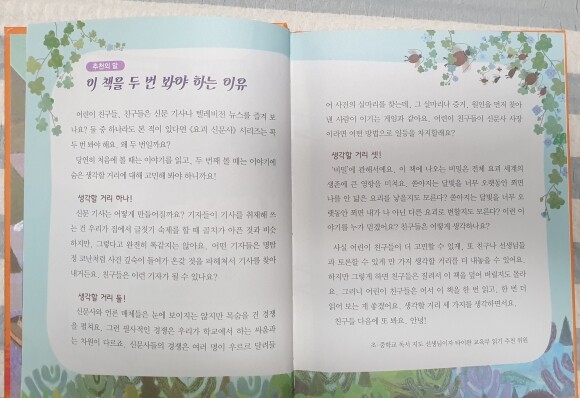 추천의 말
이 책을 두 번 봐야 하는 이유
어린이 친구들, 친구들은 신문 기사나 텔레비전 뉴스를 즐겨 보
나요? 둘 중 하나라도 본 적이 있다면 《요괴 신문사》 시리즈는 꼭
두 번 봐야 해요. 왜 두 번일까요?
당연히 처음에 볼 때는 이야기를 읽고, 두 번째 볼 때는 이야기에
숨은 생각할 거리에 대해 고민해 봐야 하니까요!
생각할 거리 하나!
신문 기사는 어떻게 만들어질까요? 기자들이 기사를 취재해 쓰
는 건 우리가 집에서 글짓기 숙제를 할 때 골치가 아픈 것과 비슷
하지만, 그렇다고 완전히 똑같지는 않아요. 어떤 기자들은 명탐
정 코난처럼 사건 깊숙이 들어가 온갖 것을 파헤쳐서 기사를 찾아
내거든요. 친구들은 이런 기자가 될 수 있나요?
생각할 거리 둘!
신문사와 언론 매체들은 눈에 보이지는 않지만 목숨을 건 경쟁
을 펼쳐요. 그런 필사적인 경쟁은 우리가 학교에서 하는 싸움과
는 차원이 다르죠. 신문사들의 경쟁은 여러 명이 우르르 달려들
어 사건의 실마리를 찾는데, 그 실마리나 증거, 원인을 먼저 찾아
낸 사람이 이기는 게임과 같아요. 어린이 친구들이 신문사 사장
이라면 어떤 방법으로 일등을 차지할래요?
생각할 거리 셋!
'비밀'에 관해서예요. 이 책에 나오는 비밀은 전체 요괴 세계의
생존에 큰 영향을 미쳐요. 쏟아지는 달빛을 너무 오랫동안 쬐면
나를 안 닮은 요괴를 낳을지도 모른다? 쏟아지는 달빛을 너무 오
랫동안 쬐면 내가 나 아닌 다른 요괴로 변할지도 모른다? 이런 이
야기를 누가 믿겠어요? 친구들은 어떻게 생각하나요?
사실 어린이 친구들이 더 고민할 수 있게, 또 친구나 선생님들
과 토론할 수 있게 만 가지 생각할 거리를 더 내놓을 수 있어요.
하지만 그렇게 하면 친구들은 질려서 이 책을 덮어 버릴지도 몰라
요. 그러니 어린이 친구들은 어서 이 책을 한 번 읽고, 한 번 더
읽어 보는 게 좋겠어요. 생각할 거리 세 가지를 생각하면서요.
친구들 다음에 또 봐요, 안녕!
초·중학교 독서 지도 선생님이자 타이완 교육부 읽기 추천 위원